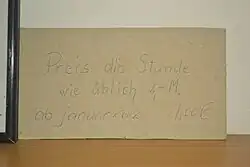 Preis die Stunde
wie üblich 4-M.
ab Januar